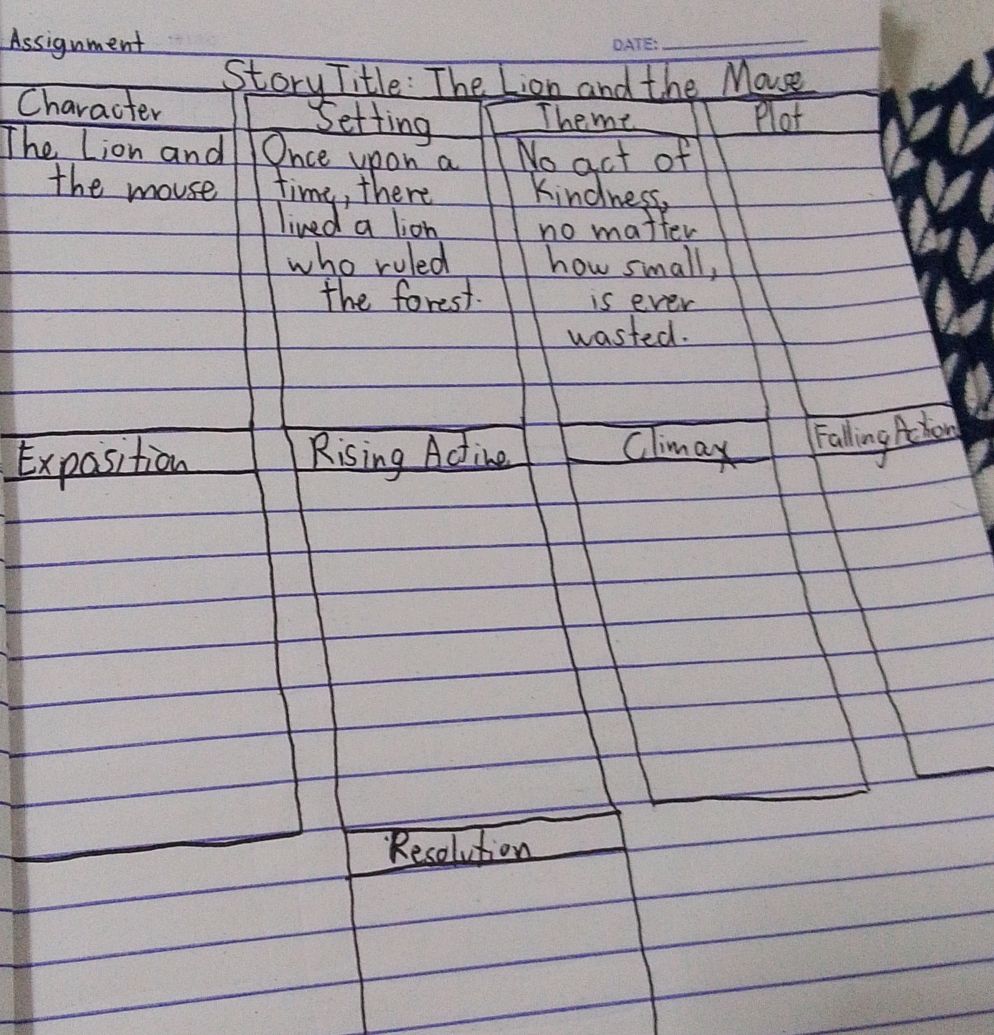 Assignment
DATE:
Story Title: The Lion and the Mouse
Character
The Lion and
the mouse
Setting
Once upon a
time, there
lived a lion
who ruled
the forest.
Theme
No act of
kindness,
no matter
how small,
is ever
wasted.
Plot
Exposition
Rising Active
Climax
Falling Action
Resolution